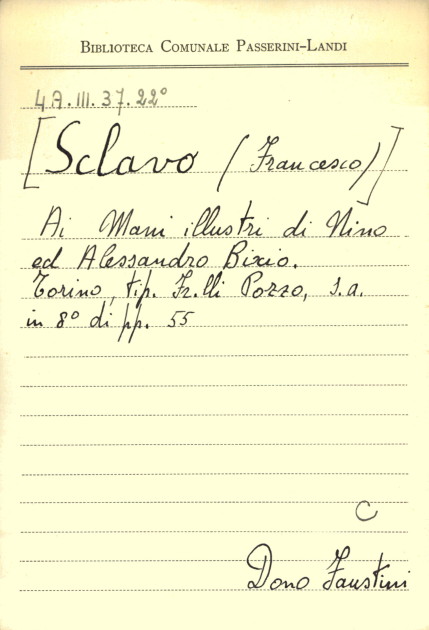 Biblioteca Comunale Passerini-Landi
4A.III.37.22°
[Sclavo (Francesco)]
Ai Mani illustri di Nino
ed Alessandro Bixio.
Torino, tip. Fr.lli Pozzo, s.a.
in 8° di pp. 55
C
Dono Faustini